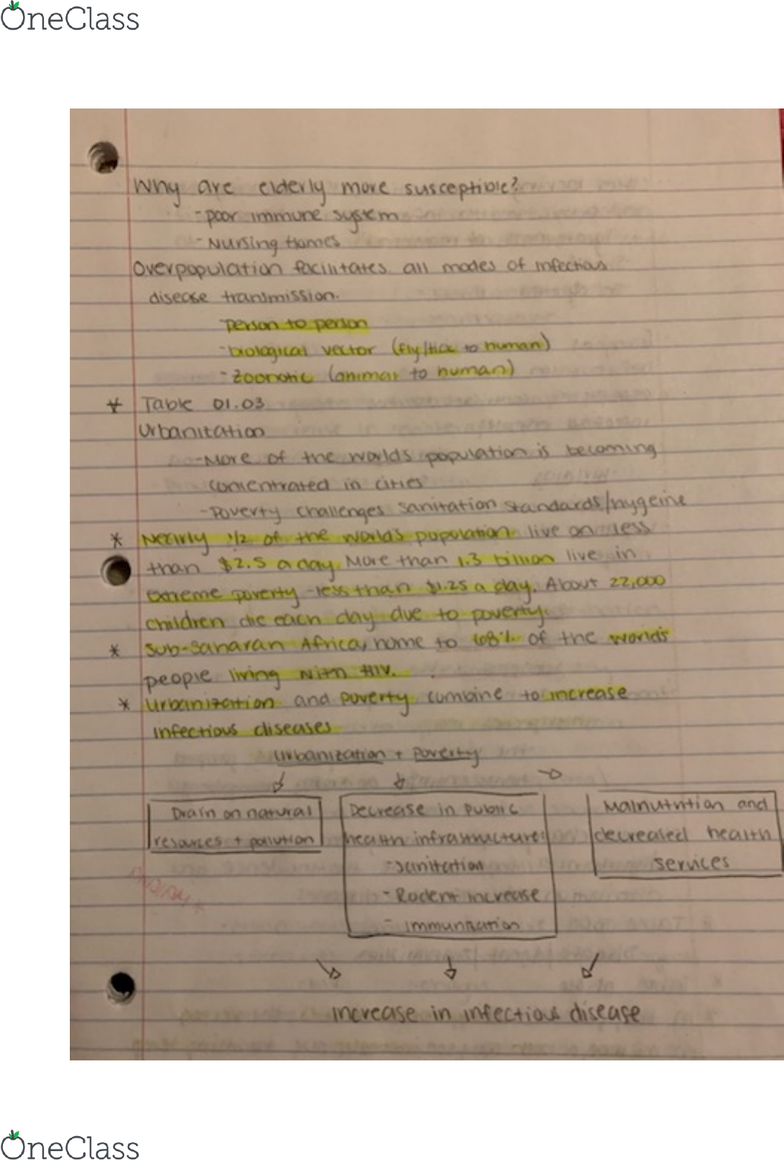 OneClass
Why are elderly more susceptible?
- poor immune system
- Nursing Homes
Overpopulation facilitates all modes of infectious
disease transmission.
person to person
- biological vector (fly/tick to human)
- Zoonotic (animal to human)
* Table 01.03
Urbanitation
- More of the worlds population is becoming
concentrated in cities
- Poverty challenges sanitation standards/hygeine
* Nearly 1/2 of the world's population live on less
than $2.5 a day. More than 1.3 billion live in
extreme poverty - less than $1.25 a day. About 22,000
children die each day due to poverty.
* Sub-saharan Africa, home to 68% of the world's
people living with HIV.
* Urbanization and poverty combine to increase
infectious diseases
Urbanization + Poverty
Drain on natural
resources + pollution
Decrease in public
health infrastructure:
- sanitation
- Rodent increase
- immunization
Malnutrition and
decreased health
services
increase in infectious disease
OneClass